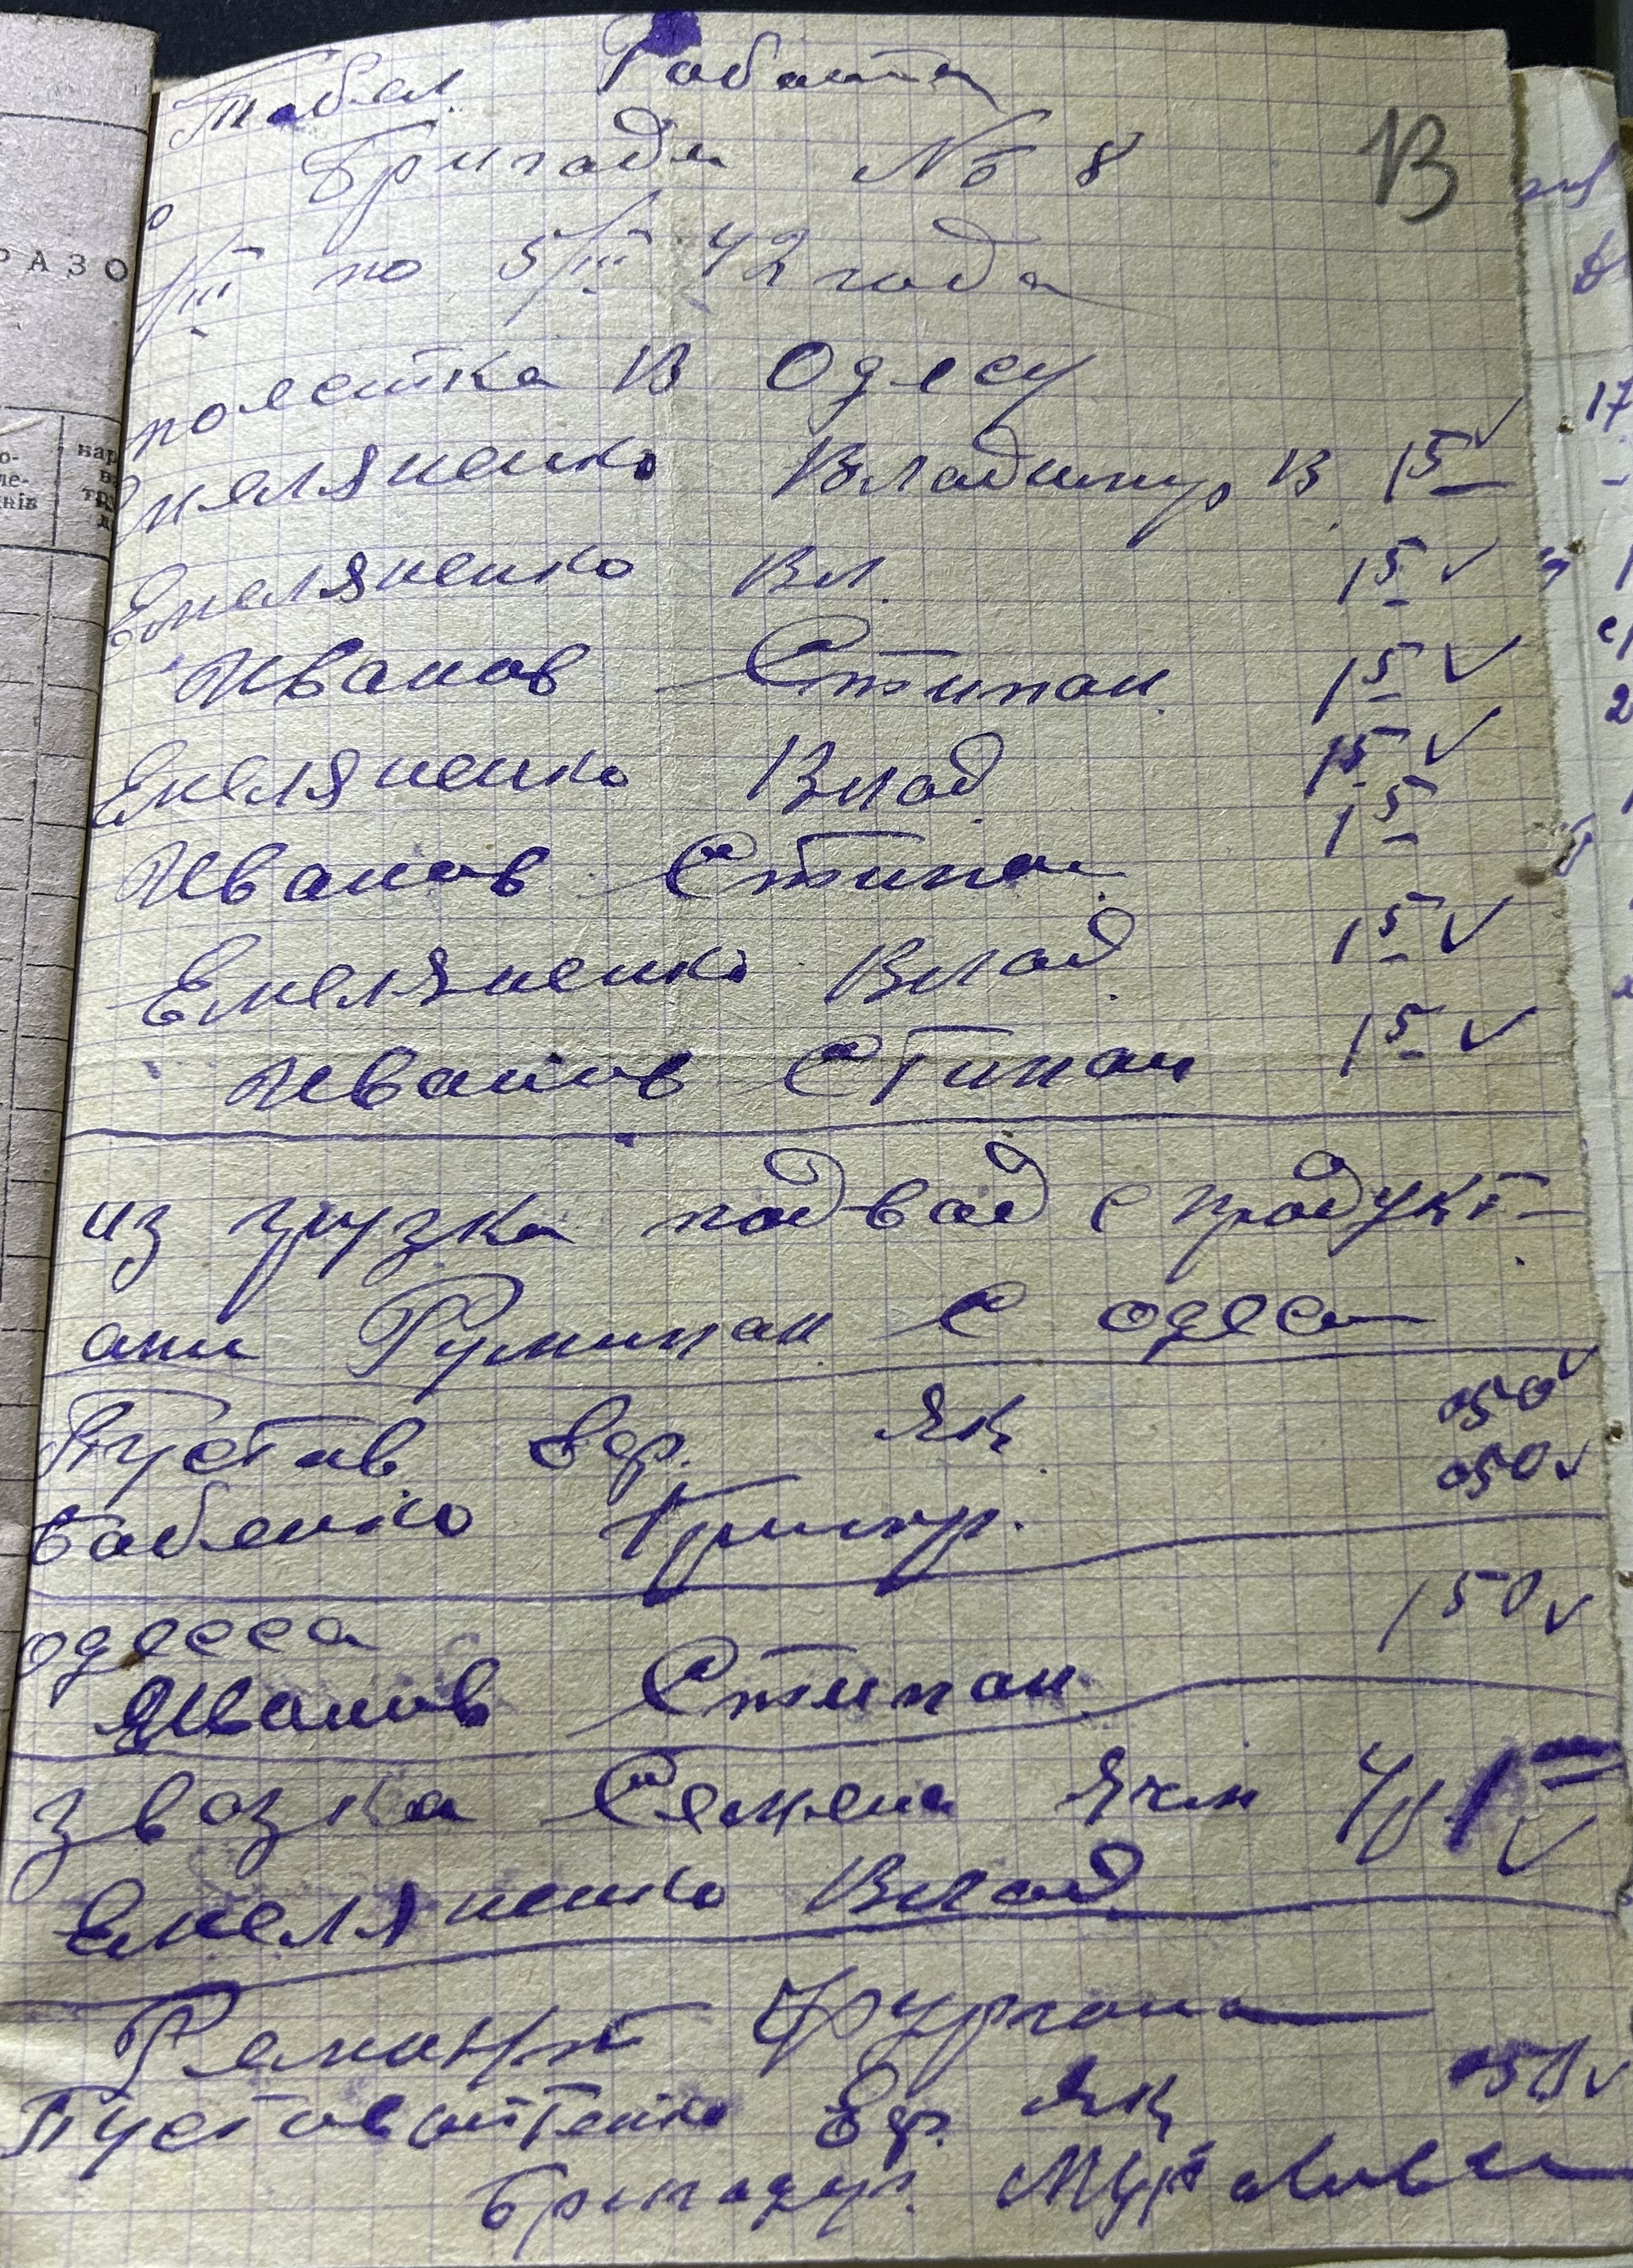 Табел Работи
Бригади № 8
В
1/III по 5/III 42 года
поестка В Одесу
Емеляненко Владимир В. 15 ✓
Емеляненко Вл. 15 ✓
Иванов Стипан 15 ✓
Емеляненко Влад 15 ✓
Иванов Стипан 15
Емеляненко Влад. 15 ✓
Иванов Стипан 15 ✓
из грузка подвод с продукт-
ами Румынан с одеса
Пустов Ефр. Як. 050 ✓
Бабенко Григор. 050 ✓
одесса 150 ✓
Иванов Стипан
звозка Семена Ячм ✓
Емеляненко Влад.
Ремонт Фургона
Пустовойтенко Ефр. Як 050 ✓
Бригадир.
РАЗО
нар
трн
днів
17